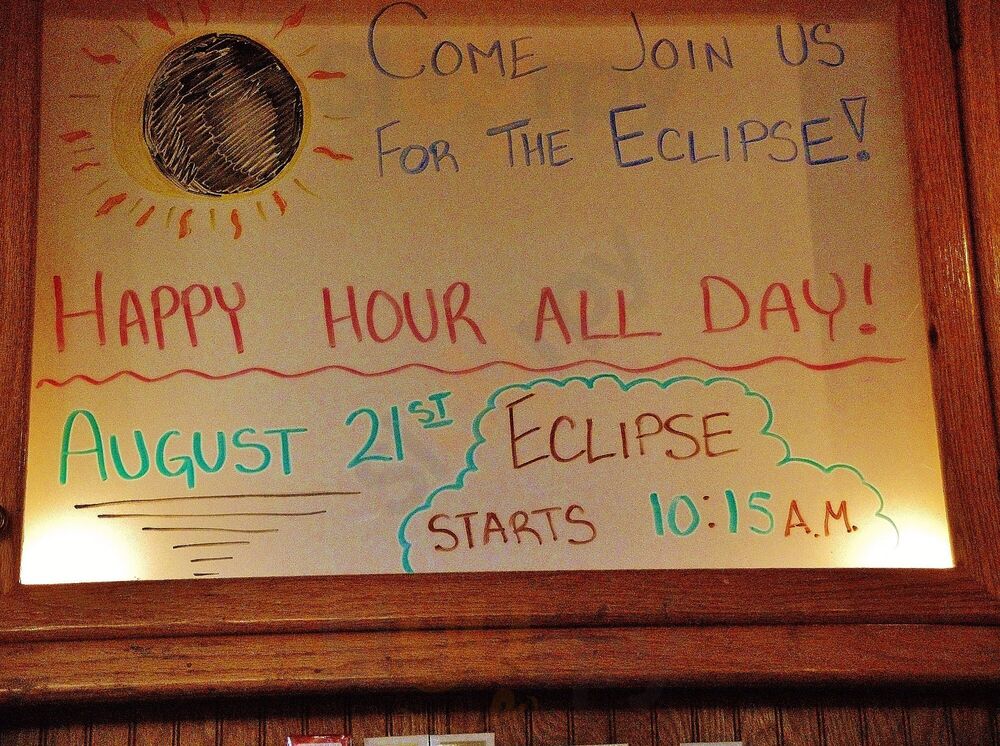 COME JOIN US
FOR THE ECLIPSE!
HAPPY HOUR ALL DAY!
AUGUST 21ST
ECLIPSE
STARTS 10:15 A.M.